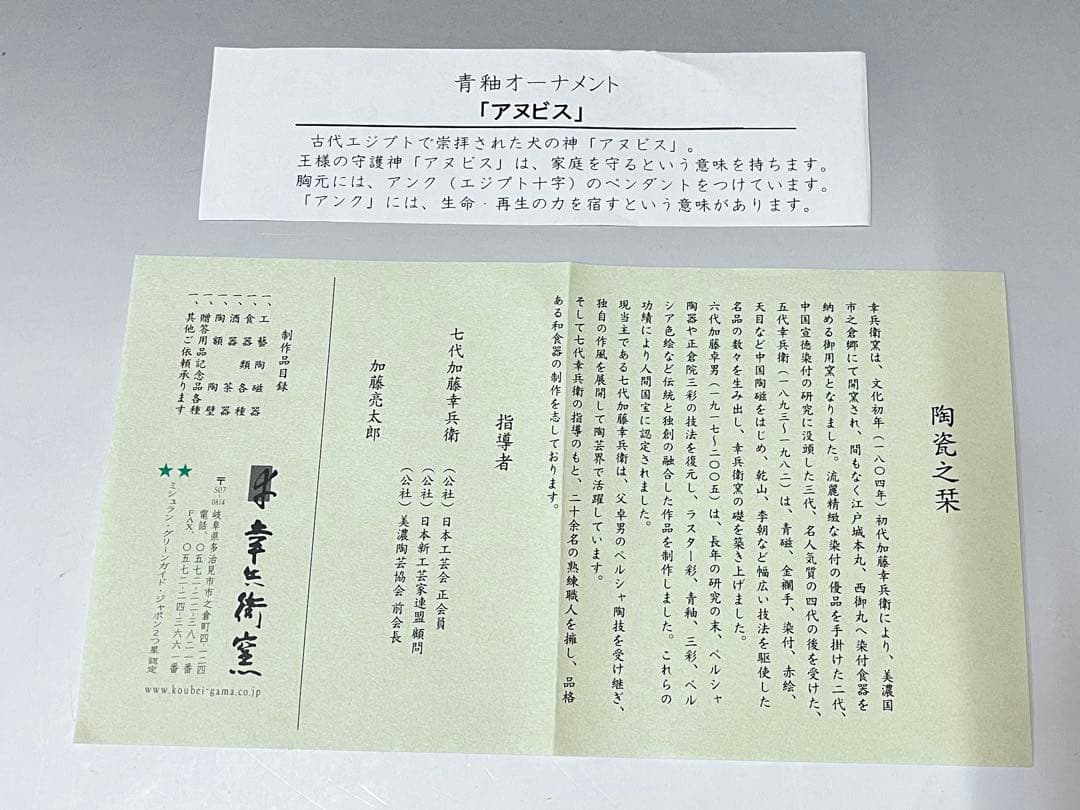 青釉オーナメント
「アヌビス」
古代エジプトで崇拝された犬の神「アヌビス」。
王様の守護神「アヌビス」は、家庭を守るという意味を持ちます。
胸元には、アンク（エジプト十字）のペンダントをつけています。
「アンク」には、生命・再生の力を宿すという意味があります。
陶瓷之栞
幸兵衛窯は、文化初年（一八〇四年）初代加藤幸兵衛により、美濃国
市之倉郷にて開窯され、間もなく江戸城本丸、西御丸へ染付食器を
納める御用窯となりました。流麗精緻な染付の優品を手掛けた二代、
中国宣徳染付の研究に没頭した三代、名人気質の四代の後を受けた、
五代幸兵衛（一八九三〜一九八二）は、青磁、金襴手、染付、赤絵、
天目など中国陶磁をはじめ、乾山、李朝など幅広い技法を駆使した
名品の数々を生み出し、幸兵衛窯の礎を築き上げました。
六代加藤卓男（一九一七〜二〇〇五）は、長年の研究の末、ペルシャ
陶器や正倉院三彩の技法を復元し、ラスター彩、青釉、三彩、ペル
シア色絵など伝統と独創の融合した作品を制作しました。これらの
功績により人間国宝に認定されました。
現当主である七代加藤幸兵衛は、父卓男のペルシャ陶技を受け継ぎ、
独自の作風を展開して陶芸界で活躍しています。
そして七代幸兵衛の指導のもと、二十余名の熟練職人を擁し、品格
ある和食器の制作を志しております。
指導者
七代加藤幸兵衛
（公社）日本工芸会 正会員
（公社）日本新工芸家連盟 顧問
（公社）美濃陶芸協会 前会長
加藤亮太郎
制作品目録
一、工藝陶磁器
一、食器類各種
一、酒器 茶器
一、陶額 陶壁
一、贈答用品記念品各種
其他ご依頼承ります
幸兵衛窯
〒507-0814 岐阜県多治見市市之倉町四-一二四
電話、〇五七二-二二-三八二一番
FAX、〇五七二-二四-三六六一番
★★ミシュラン・グリーンガイド・ジャポン2つ星認定
www.koubei-gama.co.jp